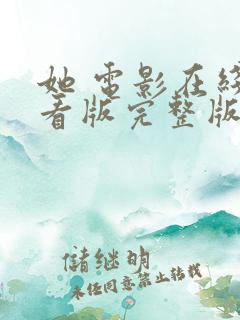 她电影在线
看版完整版
储继明
未经同意禁止转载